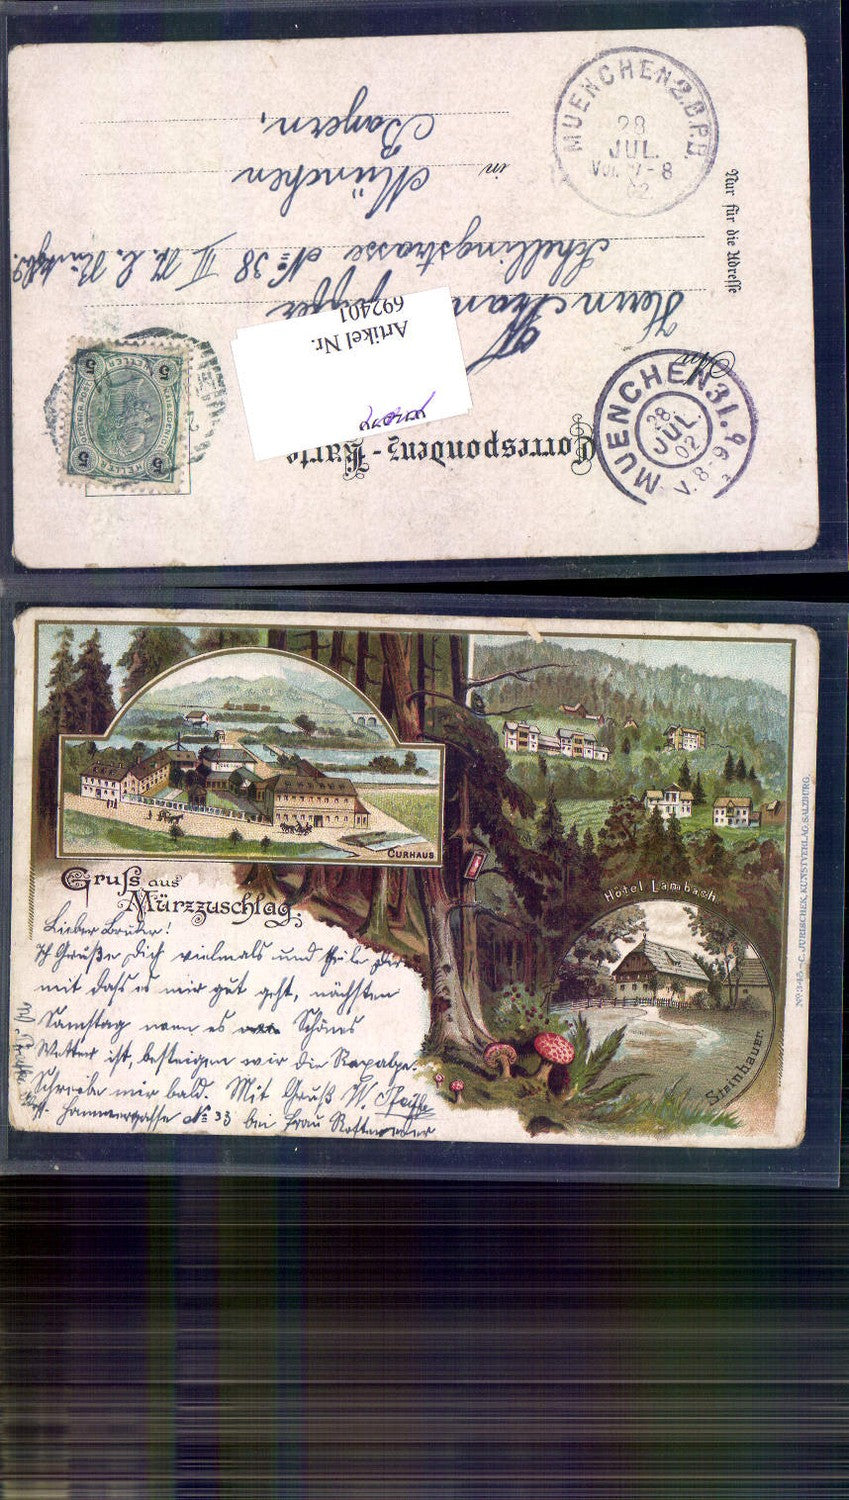 Correspondenz-Karte
Artikel Nr.
692401
An
Herrn
Schellingstrasse No 38 II
in München
Bayern,
Nur für die Adresse
MUENCHEN 31.
28.
JUL.
02
V.8-9
MUENCHEN 2.B.P.II.
28
JUL.
Vor. 7-8
02
5 5
HELLER
5 5
CURHAUS
Gruss aus
Mürzzuschlag.
Hôtel Lambach
Steinbauer.
No 345 - C. JURISCHEK, KUNSTVERLAG, SALZBURG.
Lieber Bruder!
Ich Grüße Dich vielmals und theile Dir
mit dass es mir gut geht, nächsten
Samstag wenn es Schönes
Wetter ist, besteigen wir die Raxalpe.
Schreibe mir bald. Mit Gruß
Hammergasse No 33 bei Frau